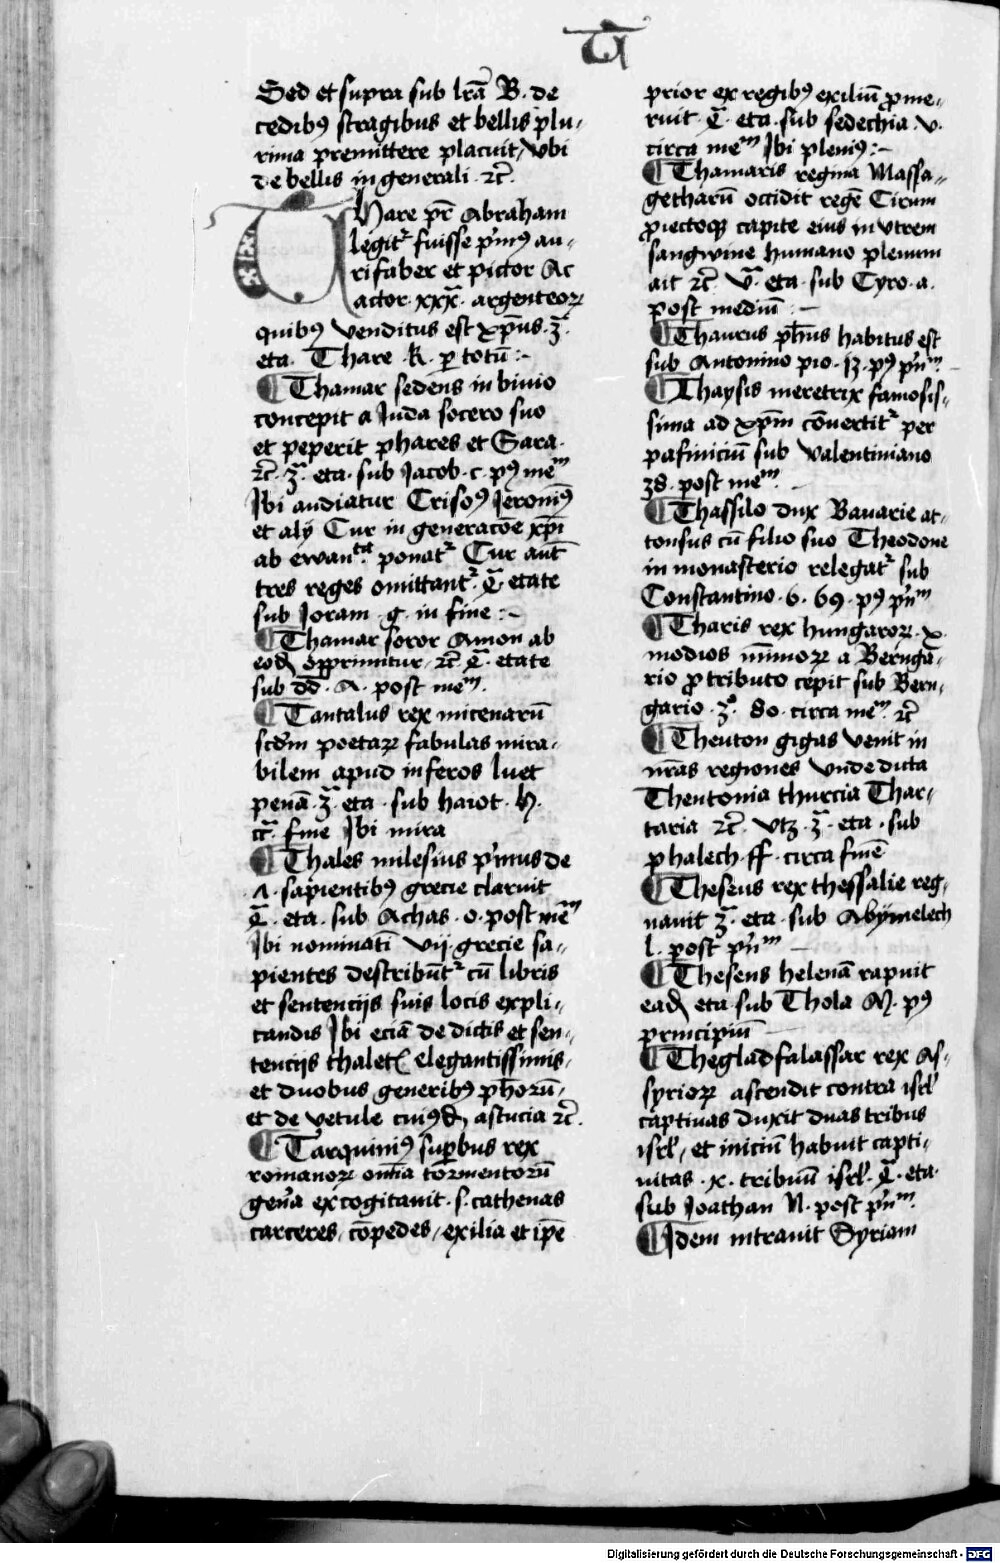 Ta
Sed et supra sub lrã B. de
cedibꝯ stragibus et bellis plu-
rima premittere placuit, vbi
de bellis in generali ꝛc̃.
Thare pr̃ Abraham
legitᷣ fuisse p'mꝯ au-
rifaber et pictor Ac
actor xxx. argenteoꝝ
quibꝯ venditus est xp̃us. 3.ᵃ
eta. Thare .k. ꝑ totũ :-
¶ Thamar sedens in biuio
concepit a Iuda socero suo
et peperit phares et Sara.
ꝛc̃. 3.ᵃ eta. sub Iacob .c. pꝯ meᵐ
Ibi audiatur Crisoꝯ Ieronimꝯ
et alij Cur in generacõe xp̃i
ab ewanᵗᵃ ponatᷣ Cur aut̃
tres reges omittantᷣ. 4.ᵃ etate
sub Ioram .g. in fine :-
¶ Thamar soror Amon ab
eodẽ opprimitur, ꝛc̃ 4.ᵃ etate
sub dd̃ . A. post meᵐ.
¶ Tantalus rex micenarũ
scd̃m poetaꝝ fabulas mira-
bilem apud inferos luet
penã. 3.ᵃ eta. sub haiot. h.
cᵃ. fine Ibi mira
¶ Thales milesius p'mus de
.7. sapientibꝯ grecie claruit
4.ᵃ eta. sub Achas .o. post meᵐ
Ibi nominati vij. grecie sa-
pientes describũtᷣ cũ libris
et sentencijs suis locis expli-
candis Ibi eciã de dictis et sen-
tencijs thalet elegantissimis,
et duobus generibꝯ ph̃orũ,
et de vetule cuiꝯdã astucia ꝛc̃.
¶ Tarquiniꝯ suꝑbus rex
romanoꝝ om̃ia tormentorũ
gen'a excogitauit .s. cathenas
carceres, cõpedes, exilia et ip̃e
prior ex regibꝯ exiliũ ꝓme-
ruit. 4.ᵃ eta. sub sedechia .v.
circa meᵐ Ibi pleniꝯ :-
¶ Thamaris regina Massa-
getharũ occidit regẽ Cirum
ꝓiectoqꝫ capite eius in vtrem
sangwine humano plenum
ait ꝛc̃ v.ᵃ eta. sub Cyro .a.
post mediũ :-
¶ Thaurus ph̃us habitus est
sub Antonino pio. pꝯ p'nᵐ.
¶ Thaysis meretrix famosis-
sima ad xp̃m cõuertitᷣ per
pafniciũ sub Valentiniano
38. post meᵐ.
¶ Thassilo dux Bauarie at-
tonsus cũ filio suo Theodone
in monasterio relegatᷣ sub
Constantino .6. 69. pꝯ p'nᵐ
¶ Tharis rex hungaroꝝ .x.
modios nũmoꝝ a Bernga-
rio ꝓ tributo cepit sub Bern-
gario .3.º 80. circa meᵐ ꝛc̃
¶ Theuton gigas venit in
nr̃as regiones vnde dicta
Theutonia thurcia Thar-
taria ꝛc̃. vtꝫ. 3.ᵃ eta. sub
phalech .ff. circa finẽ
¶ Theseus rex thessalie reg-
nauit 3.ᵃ eta. sub Abymelech
l. post p'nᵐ
¶ Theseus helenã rapuit
eadẽ eta. sub Thola M. pꝯ
principiũ
¶ Theglad falassar rex As-
syrioꝝ ascendit contra isrl̃
captiuas duxit duas tribus
isrl̃, et iniciũ habuit capti-
uitas .x. tribuũ isrl̃. 4.ᵃ eta.
sub Ioathan N. post p'nᵐ.
¶ Idem intrauit Syriam
Digitalisierung gefördert durch die Deutsche Forschungsgemeinschaft - DFG